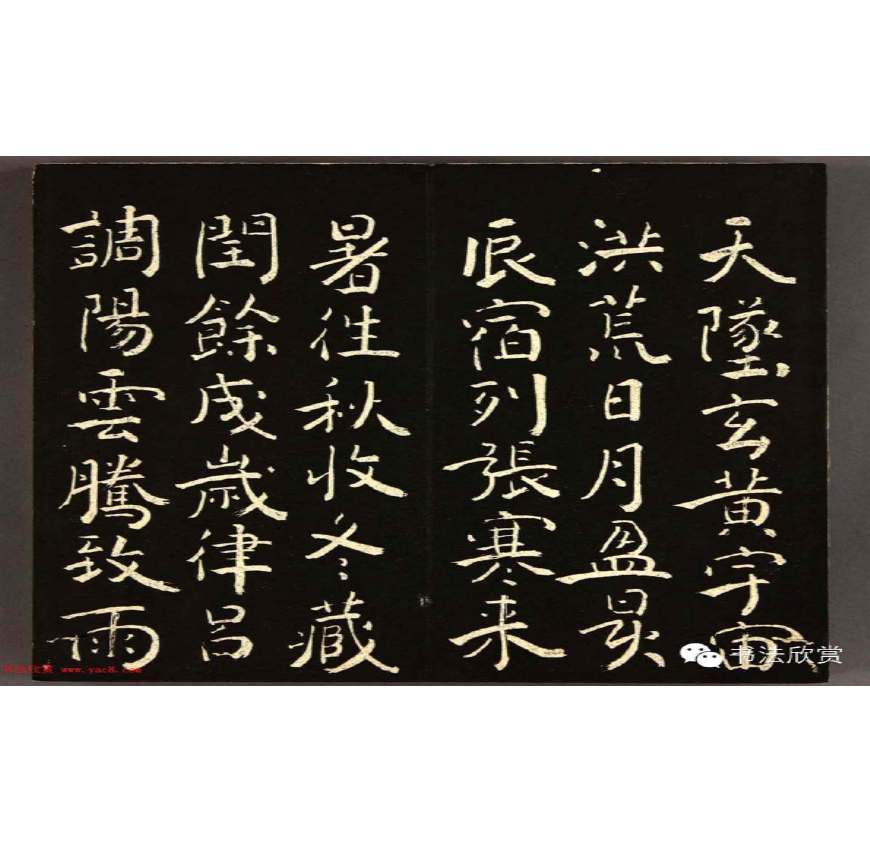 天墜玄黃宇宙
洪荒日月盈昃
辰宿列張寒来
暑往秋收冬藏
閏餘成歲律吕
調陽雲騰致雨
书法欣赏
书法欣赏 www.yac8.com